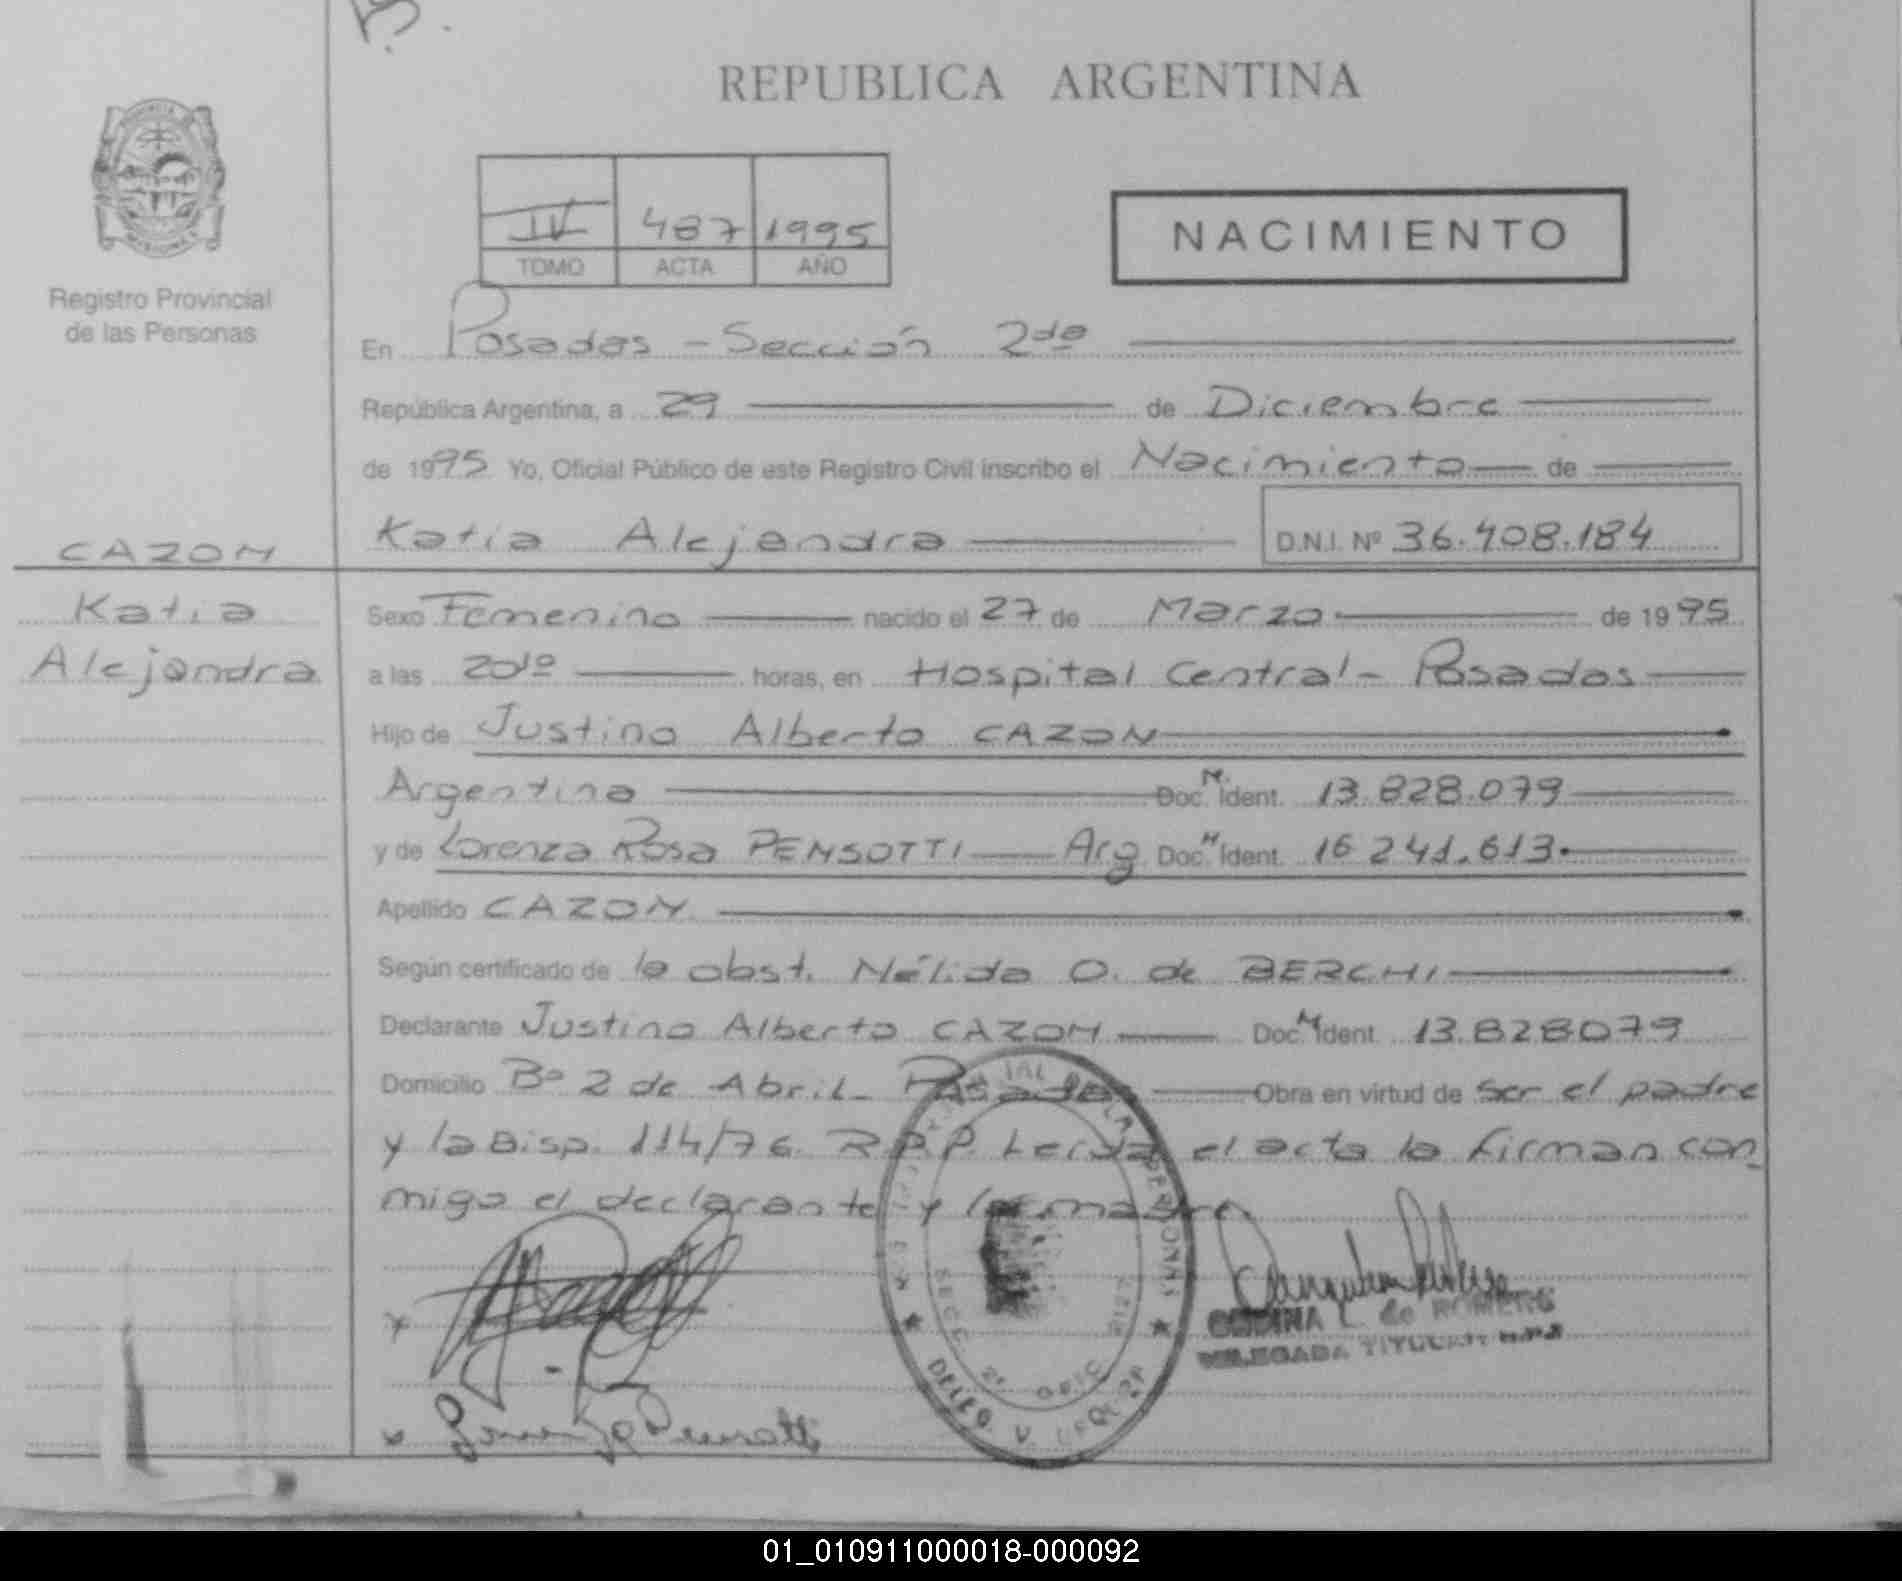 REPUBLICA ARGENTINA
IV 487 1995
TOMO ACTA AÑO
NACIMIENTO
Registro Provincial
de las Personas
En Posadas - Sección 2da
República Argentina, a 29 de Diciembre
de 1995 Yo, Oficial Público de este Registro Civil inscribo el Nacimiento de
Katia Alejandra D.N.I. Nº 36.408.184
CAZON
Katia
Alejandra
Sexo Femenino nacido el 27 de Marzo de 1995
a las 20:10 horas, en Hospital Central - Posadas
Hijo de Justino Alberto CAZON
Argentino Doc. N. Ident. 13.828.079
y de Lorenza Rosa PENSOTTI Arg Doc. N Ident. 16 241.613.
Apellido CAZON
Según certificado de la obst. Nélida O. de BERCHI
Declarante Justino Alberto CAZON Doc. N Ident. 13.828079
Domicilio Bº 2 de Abril - Posadas Obra en virtud de ser el padre
y la Disp. 114/76 R.P.P. Leída el acta la firman con
migo el declarante y la madre.
L. de ROMERO
DELEGADA TITULAR
01_010911000018-000092